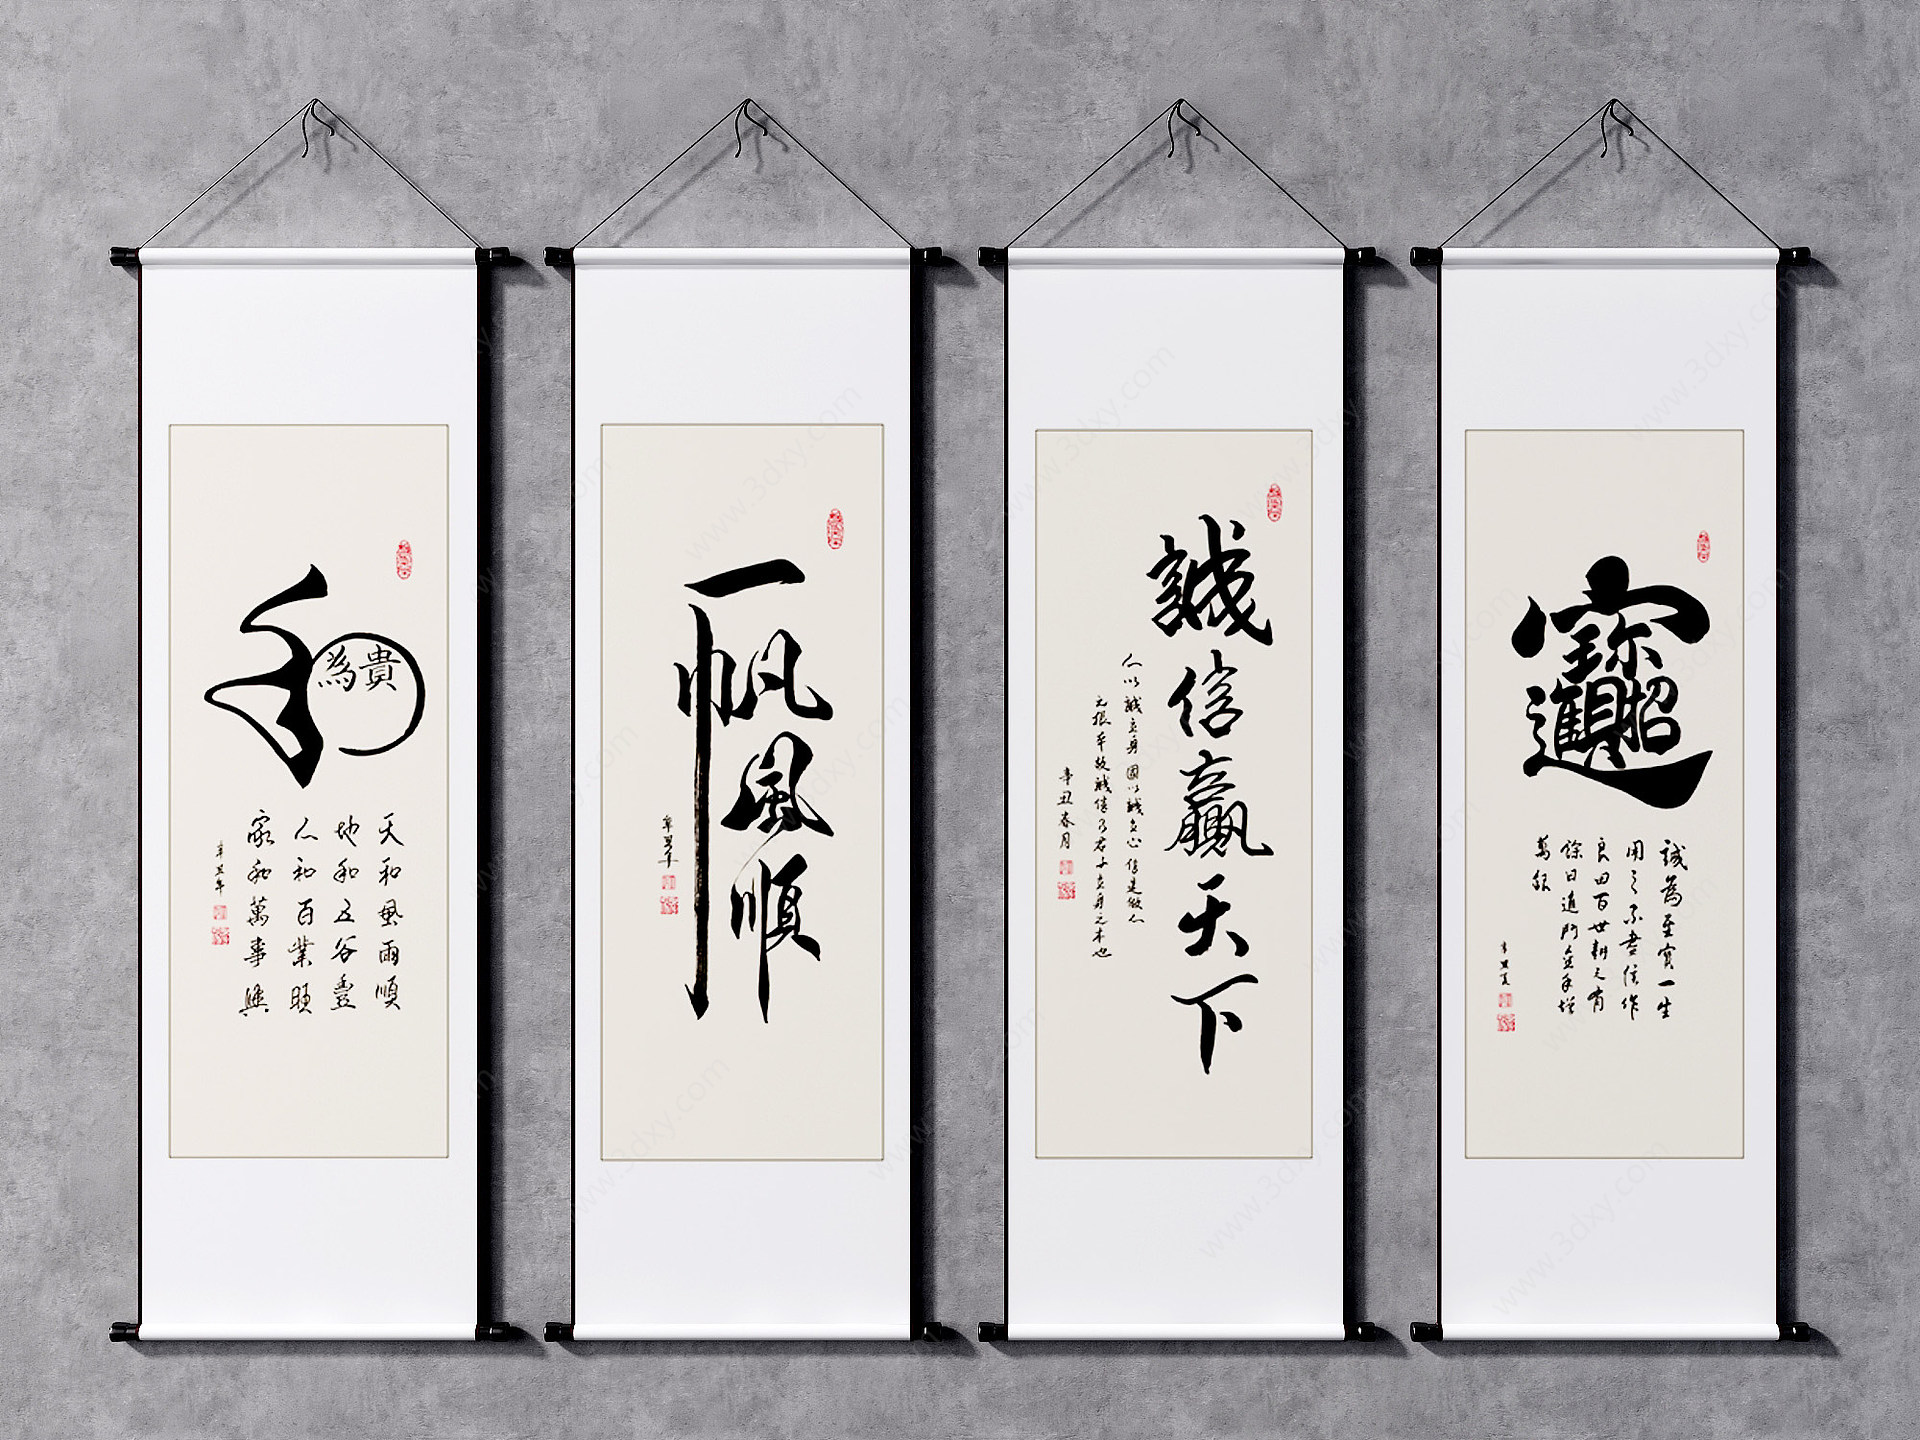 和
為貴
天和風雨順
地和五谷豐
人和百業旺
家和萬事興
辛丑年
一帆風順
辛丑年
誠信贏天下
人以誠立身國以誠立心信是做人
之根本故誠信乃君子立身之本也
辛丑春月
招財進寶
誠為至寶一生
用之不盡信作
良田百世耕之有
餘日進鬥金年增
萬銀
辛丑夏
www.3dxy.com